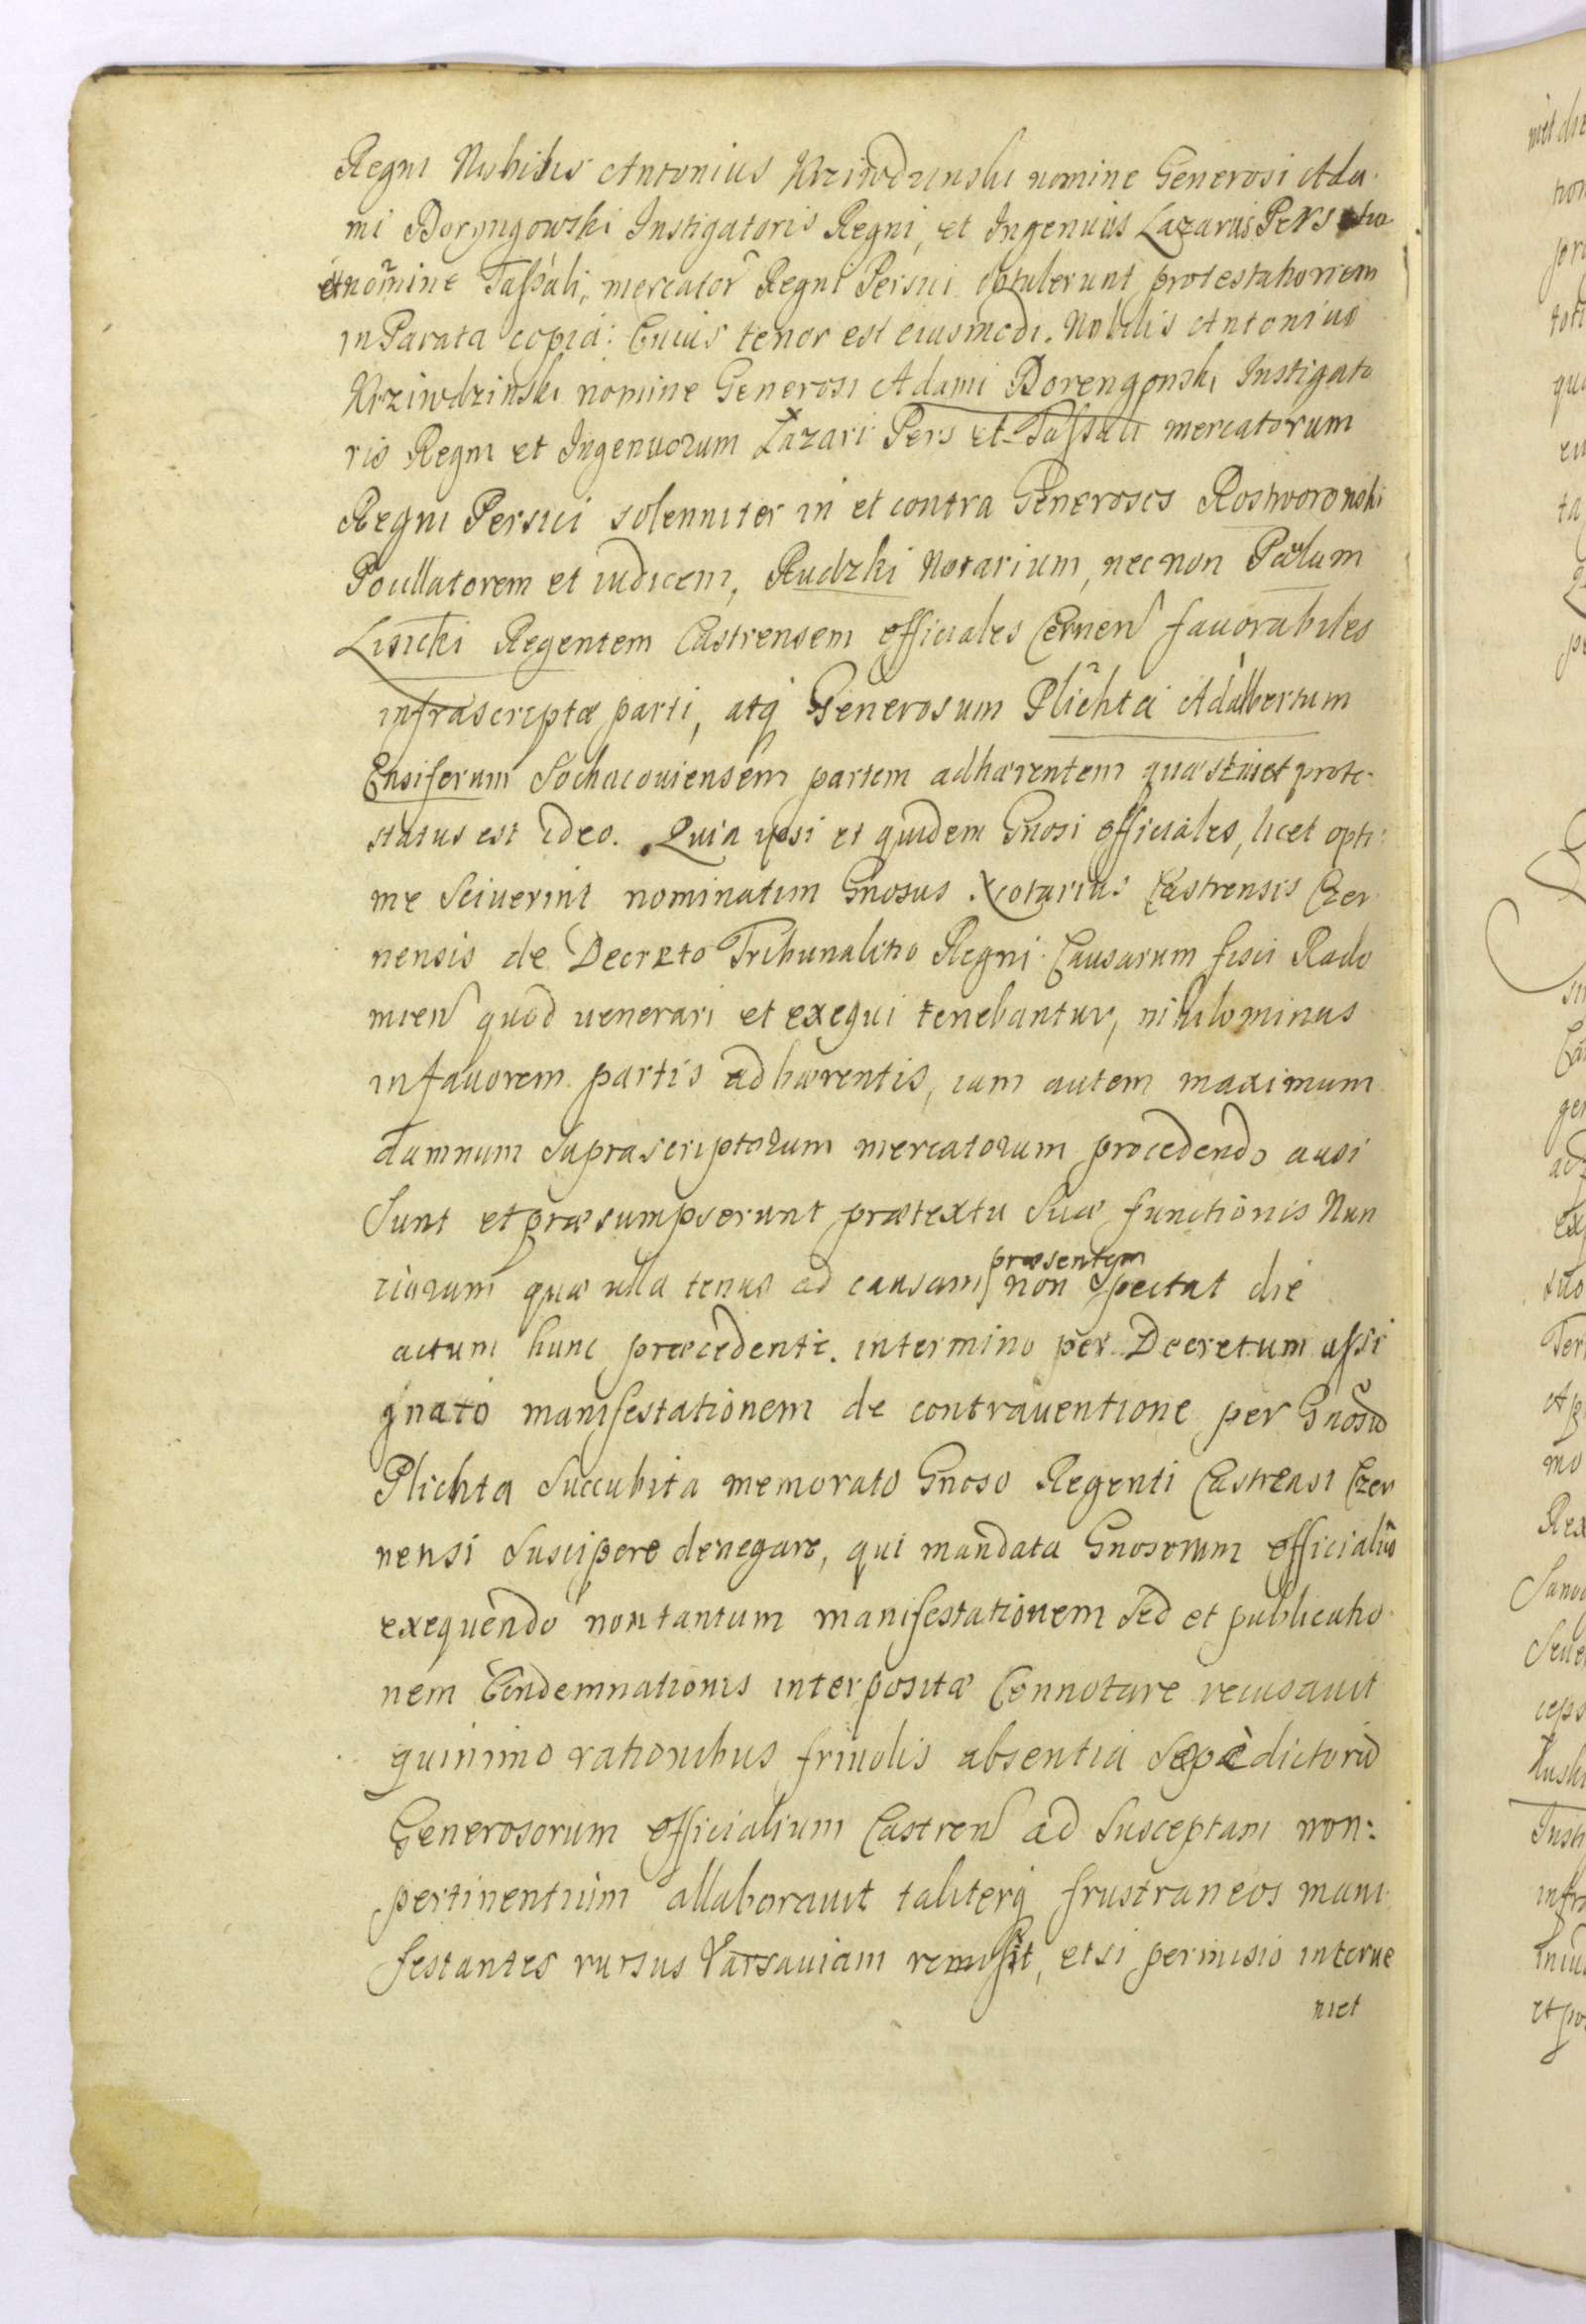 Regni Nobilis Antonius Krziwdzinski nomine Generosi Ada
mi Boryngowski Instigatoris Regni, et Ingenuus Lazarus Pers
et nomine Tassali, mercator Regni Persici obtulerunt protestationem
in Parata copia: Cuius tenor est eiusmodi. Nobilis Antonius
Krziwdzinski nomine Generosi Adami Dorengowski Instigato
ris Regni et Ingenuorum Lazari Pers et Tassali mercatorum
Regni Persici solenniter in et contra Generosos Rostworowski
Pocillatorem et iudicem, Rudzki Notarium, nec non Paulum
Lisicki Regentem Castrensem officiales Cernen favorabiles
infrascriptæ parti, atq Generosum Plichta Adalbertum
Ensiferum Sochacoviensem partem adhærentem quæstus et prote-
status est ideo. Quia ipsi et quidem Gnosi officiales, licet opti
me Sciverint nominatim Gnosus Notarius Castrensis Czer
nensis de Decreto Tribunalitio Regni Causarum fisci Rado
mien quod venerari et exequi tenebantur, nihilominus
in favorem partis adhærentis, iam autem maximum
damnum Suprascriptorum mercatorum procedendo ausi
Sunt et præsumpserunt prætextu Suæ functionis Nun
tiorum quæ ulla tenus ad causam præsentem non Spectat die
actum hunc præcedente. in termino per Decretum assi
gnato manifestationem de contraventione per Gnosũ
Plichta Succubita memorato Gnoso Regenti Castrensi Czer
nensi Suscipere denegare, qui mandata Gnosorum officialiũ
exequendo non tantum manifestationem Sed et publicatio
nem Condemnationis interpositæ Connotare recusavit
quinimo rationibus frivolis absentia Sæpè dictorũ
Generosorum officialium Castren ad Susceptam non:
pertinentium allaboravit taliterq frustraneos mani
festantes rursus Varsaviam remisit, etsi permisio interve
niet